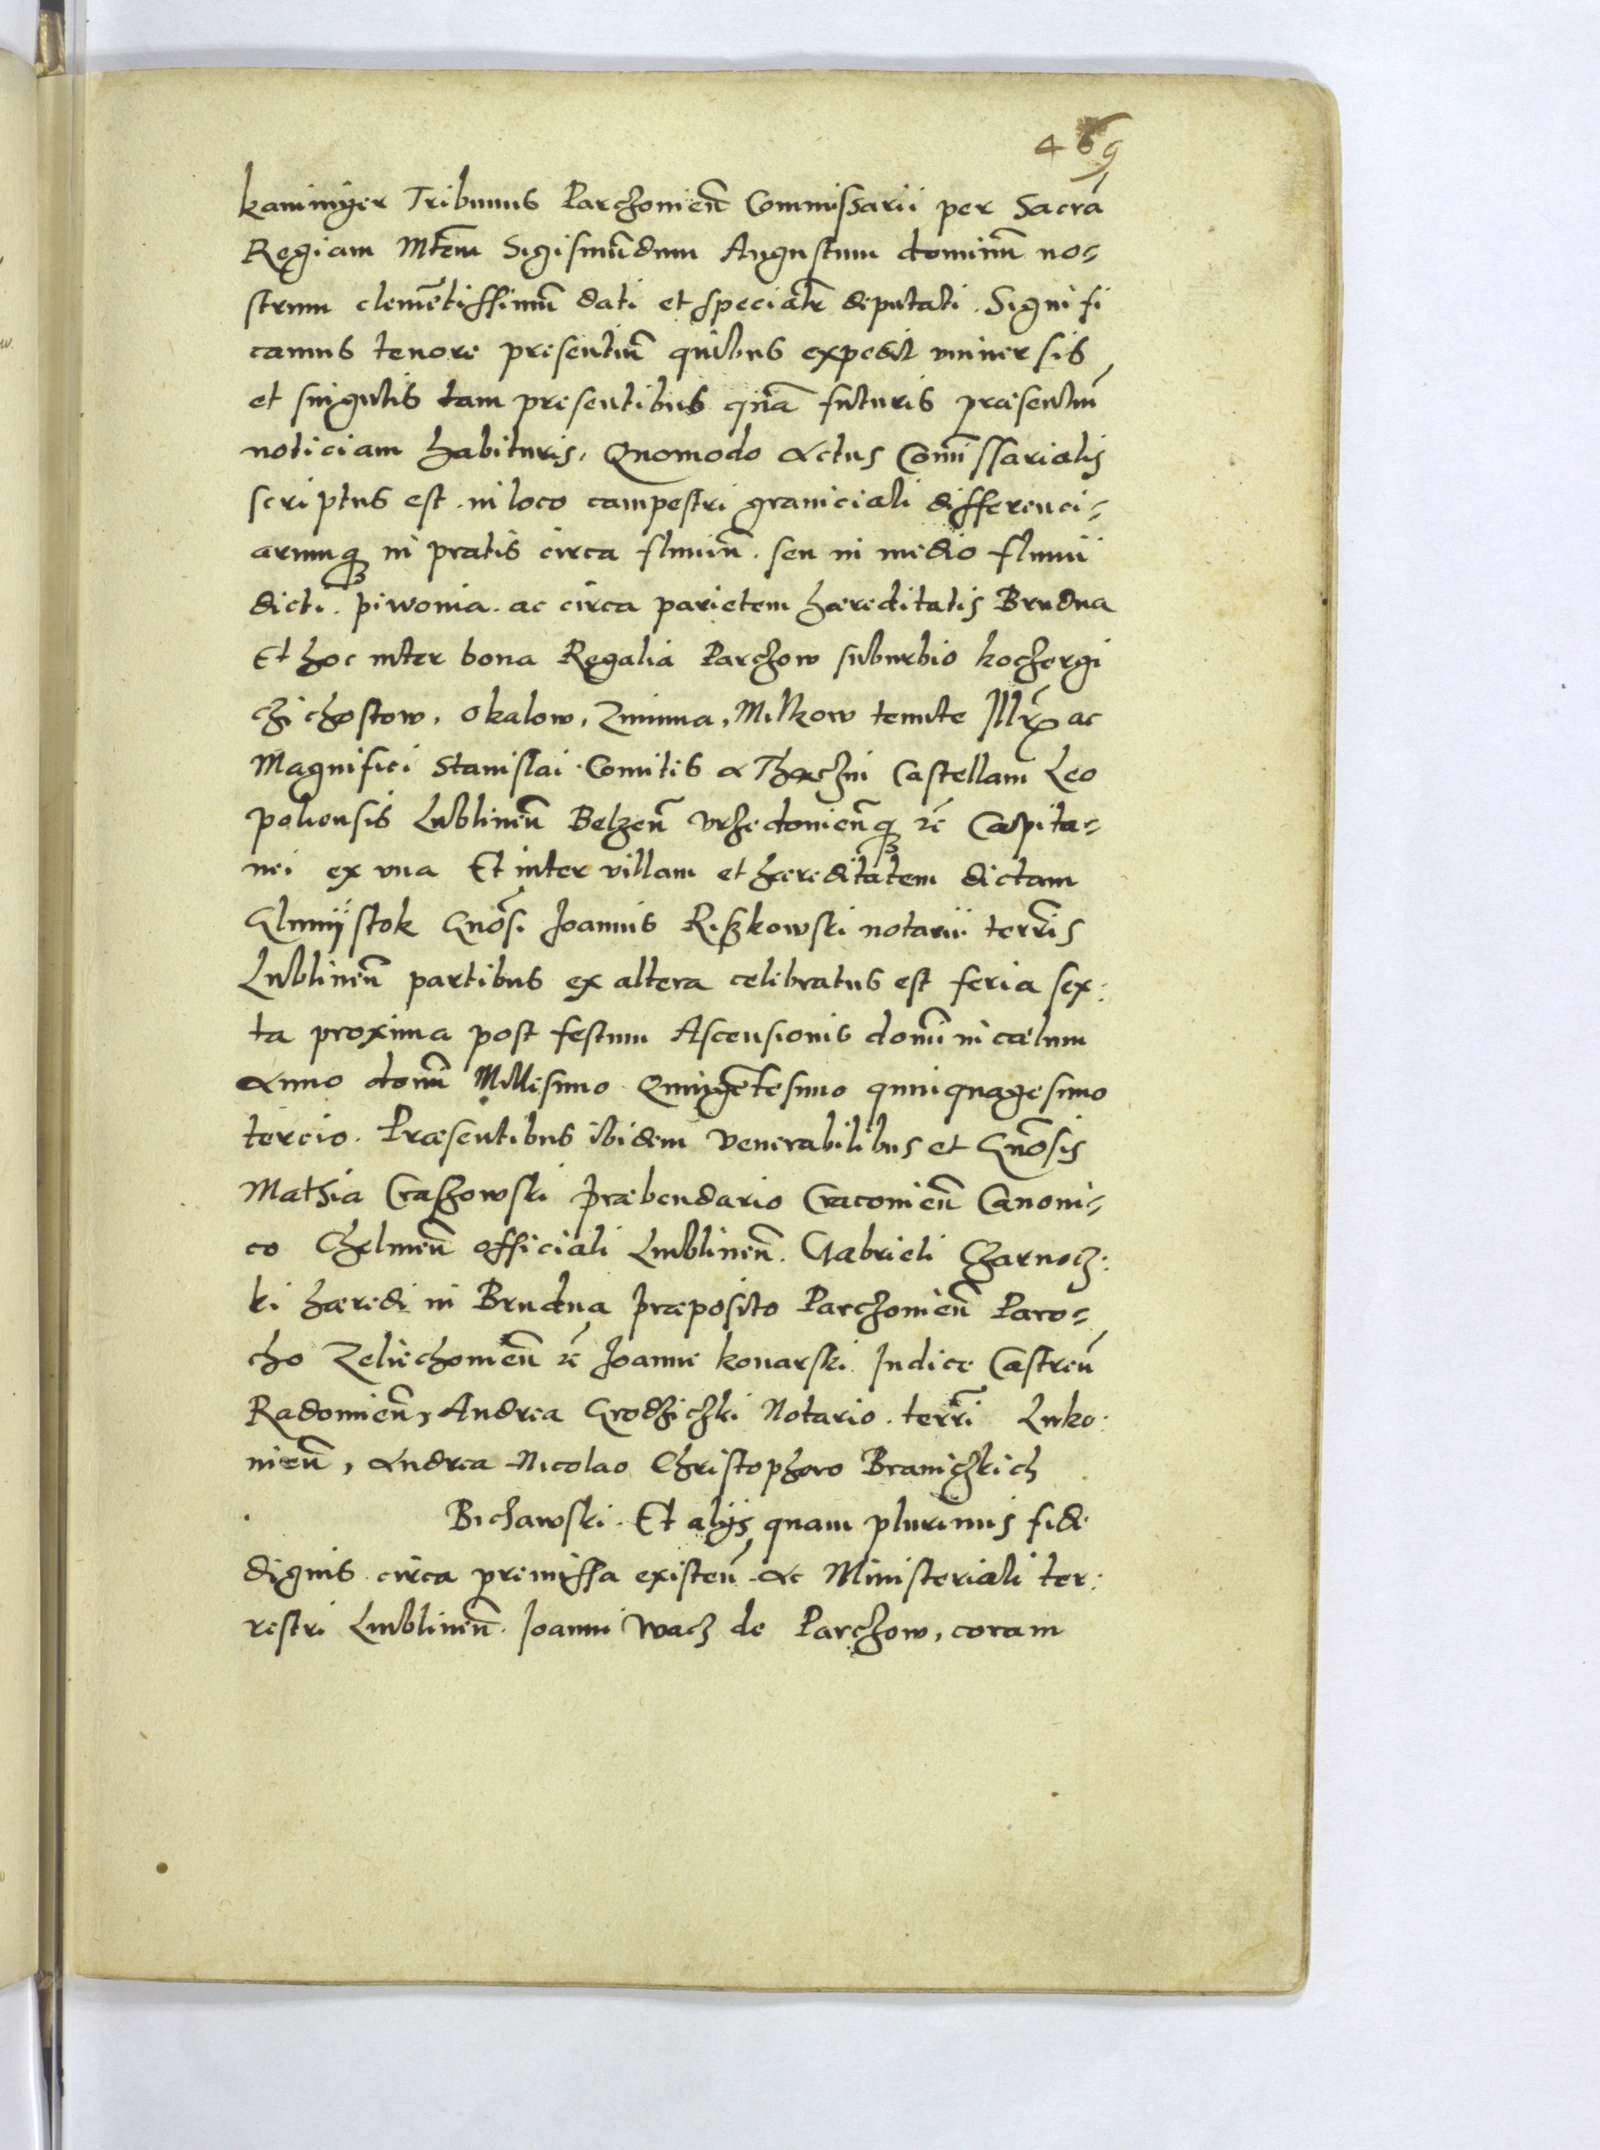 469
kaminyer Tribunus Parczovieñ Commissarii per Sacrã
Regiam Mtẽm Sigismũdum Augustum dominũ no-
strum clemẽtissimũ dati et specialr̃ deputati. Signifi
camus tenore presentiũ quibus expedit vniuersis
et singulis tam presentibus quã futuris præsentiũ
noticiam habituris, Quomodo Actus Com̃issarialis
scriptus est in loco campestri graniciali differenci-
arumq̃ in pratis circa fluuiũ seu in medio fluuii
dicti. piwonia. ac circa parietem hæreditatis Brudna
Et hoc inter bona Regalia Parczow suburbio koczergi
Chichostow, Okalow, Zminna, Milkow tenute Illr̃ ac
Magnifici Stanislai Comitis a Thaczin Castellani Leo
poliensis Lublineñ Belzeñ Vrzedovieñq̃ r̃c Capita-
nei ex vna Et inter villam et hæreditatem dictam
Gluuystok Gñosi Joannis Riszkowski notarii terr̃is
Lublineñ partibus ex altera celibratus est feria sex:
ta proxima post festum Ascensionis dom̃i in cælum
Anno dom̃i Millesimo Quingẽtesimo quinquagesimo
tercio. Præsentibus ibidem Venerabilibus et Gñosis
Mathia Craszowski Præbendario Cracovieñ Canoni-
co Chelmeñ officiali Lublineñ. Gabrieli Czarnocz:
ki hæredi in Brudna Præposito Parczovieñ Paro-
cho Zeliechovieñ r̃c Joanne konarski Judice Castreñ
Radomieñ, Andrea Grodziczki Notario terr̃i Luko:
vieñ, Andrea Nicolao Christophoro Braniczkich
Bichawski. Et alys quam plurimis fide
dignis circa premissa existeñ ac Ministeriali ter:
restri Lublineñ. Joanni Wacz de Parczow, coram